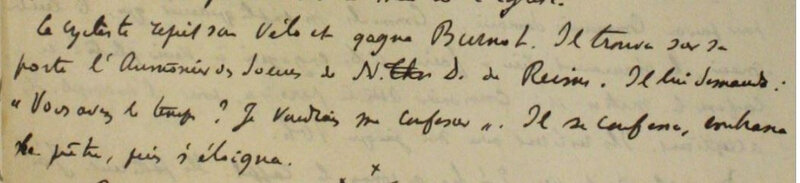 Le cycliste reprit son vélo et gagna Burnot. Il trouva sur sa
porte l'Aumônier des Soeurs de N. D. de Reims. Il lui demanda :
"Vous avez le temps ? Je voudrais me confesser". Il se confessa, embrassa
le prêtre, puis s'éloigna.
x